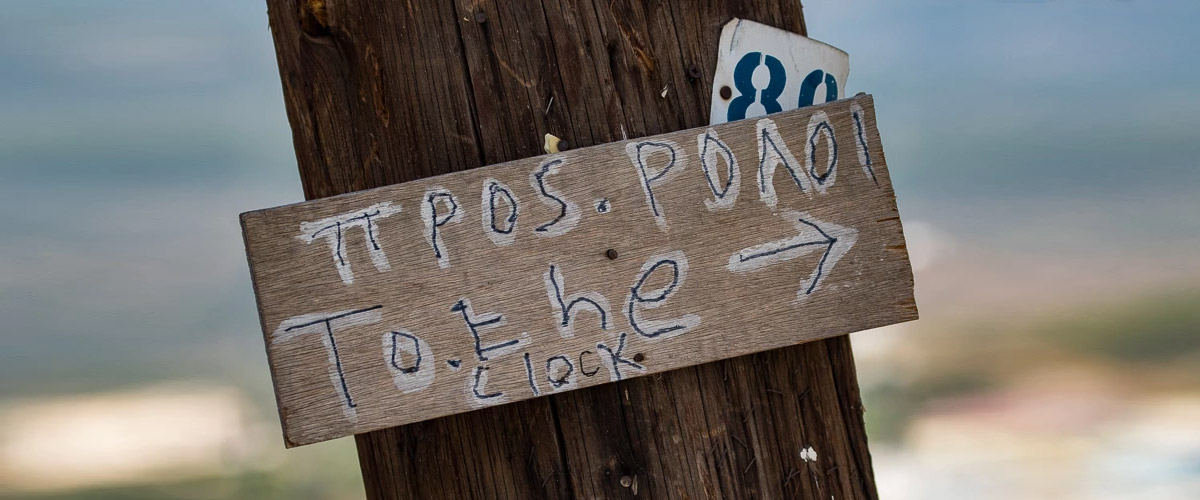 80
πΡΟS.ΡΟΛΟΙ
To.the →
CLOCK